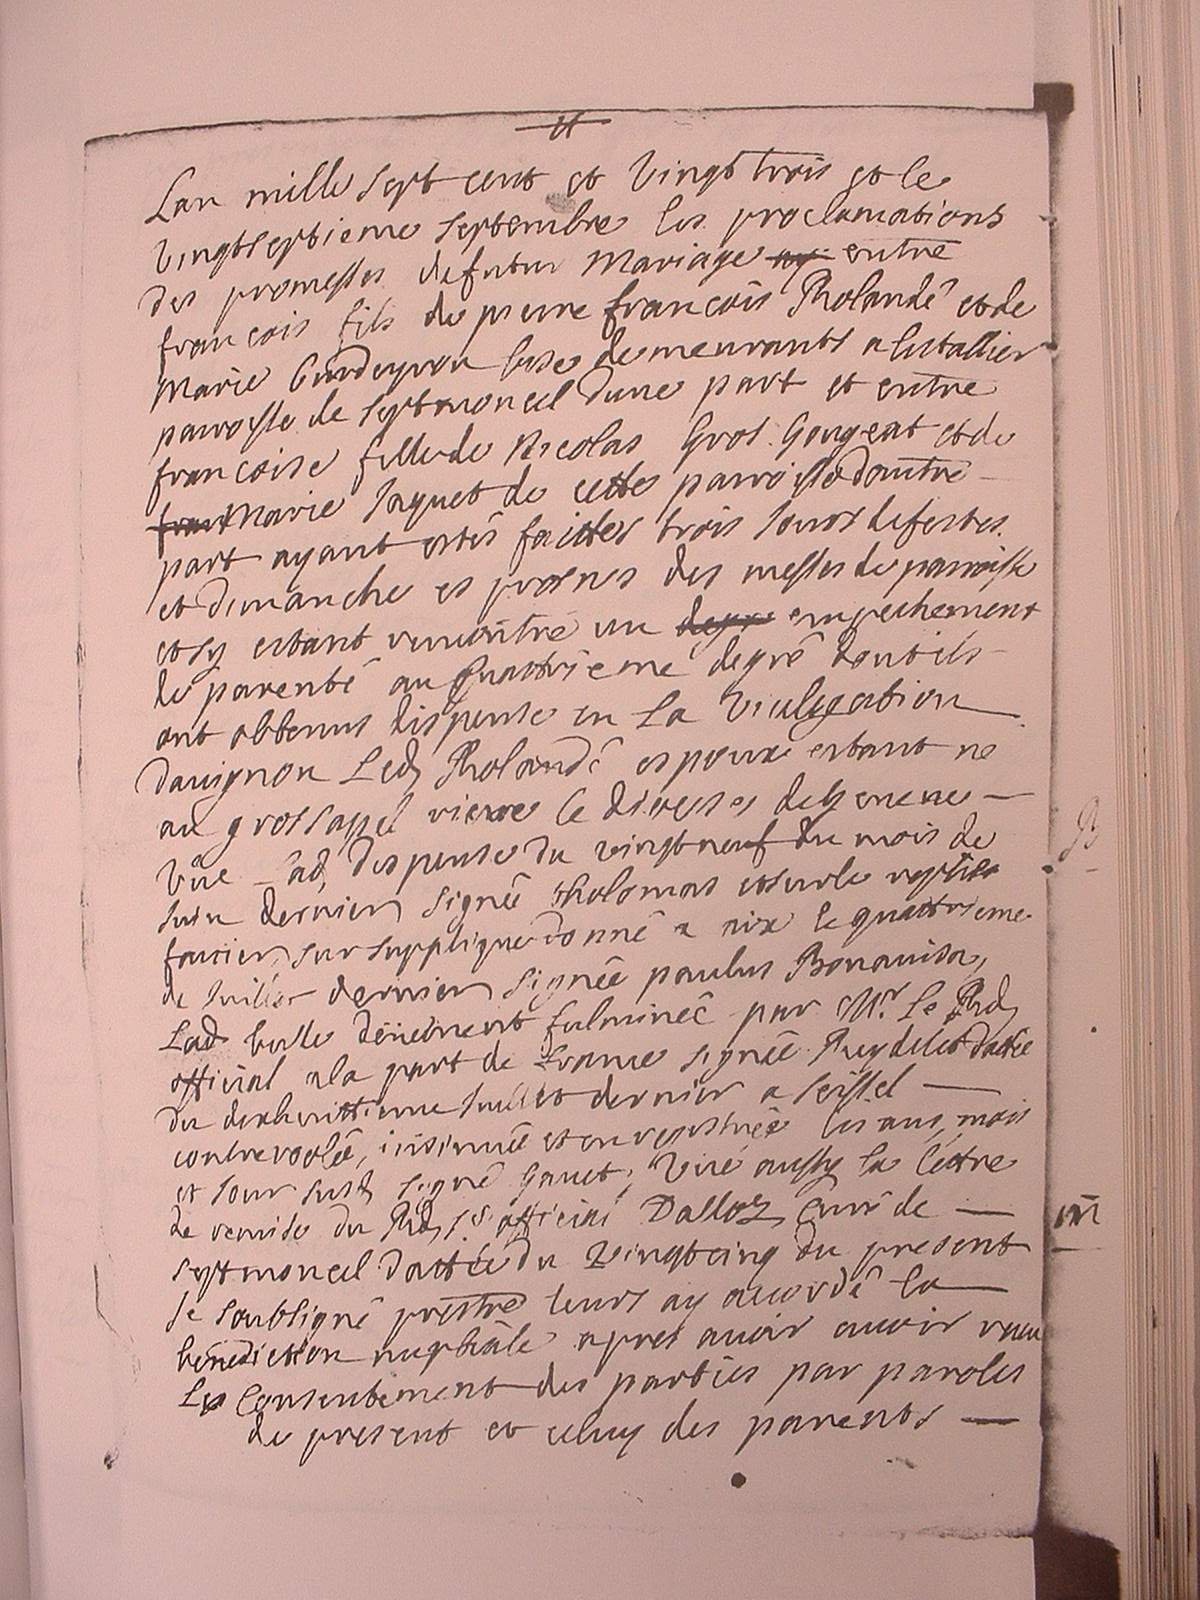 Lan mille sept cent et vingt trois et le
vingtseptieme septembre les proclamations
des promesses defutur mariage entre
francois fils de pierre francois Rholandé et de
Marie demeurants a
parroisse de septmoncel dune part et entre
francoise fille de Nicolas Gros Gougeat et de
Marie Jaquet de cette parroisse dautre
part ayant estés faittes trois Jours defestes
et dimanche es prosnes des messes de parroisse
et sy estant rencontré un empechement
de parenté au quattrieme degré dont ils
ont obtenus dispense en La Vicelegation
davignon Led Rholandé espoux estant né
au grossapel riere le dioesses degeneve
Vüe Lad, dispense du vingtneuf du mois de
Juin dernier signée et sur le
sur supplique donné a aix le quattrieme
de Juillet dernier signée paulus Bonavita,
Lad bulle deüement fulminée par Mr. le Rd
official ala part de france signée dattée
du dixhuittieme Juillet dernier a seissel
controolée, insinuée et enregistrée les ans, mois
et Jour susd signé Ganet, Vüe aussy la lettre
de remise du Rd sr. official Dalloz Curé de
septmoncel dattée du vingtcinq du present
Je soubsigné prestre leurs ay accordé la
benediction nuptiale apres avoir avoir receu
Le Consentement des parties par paroles
de present et celuy des parents